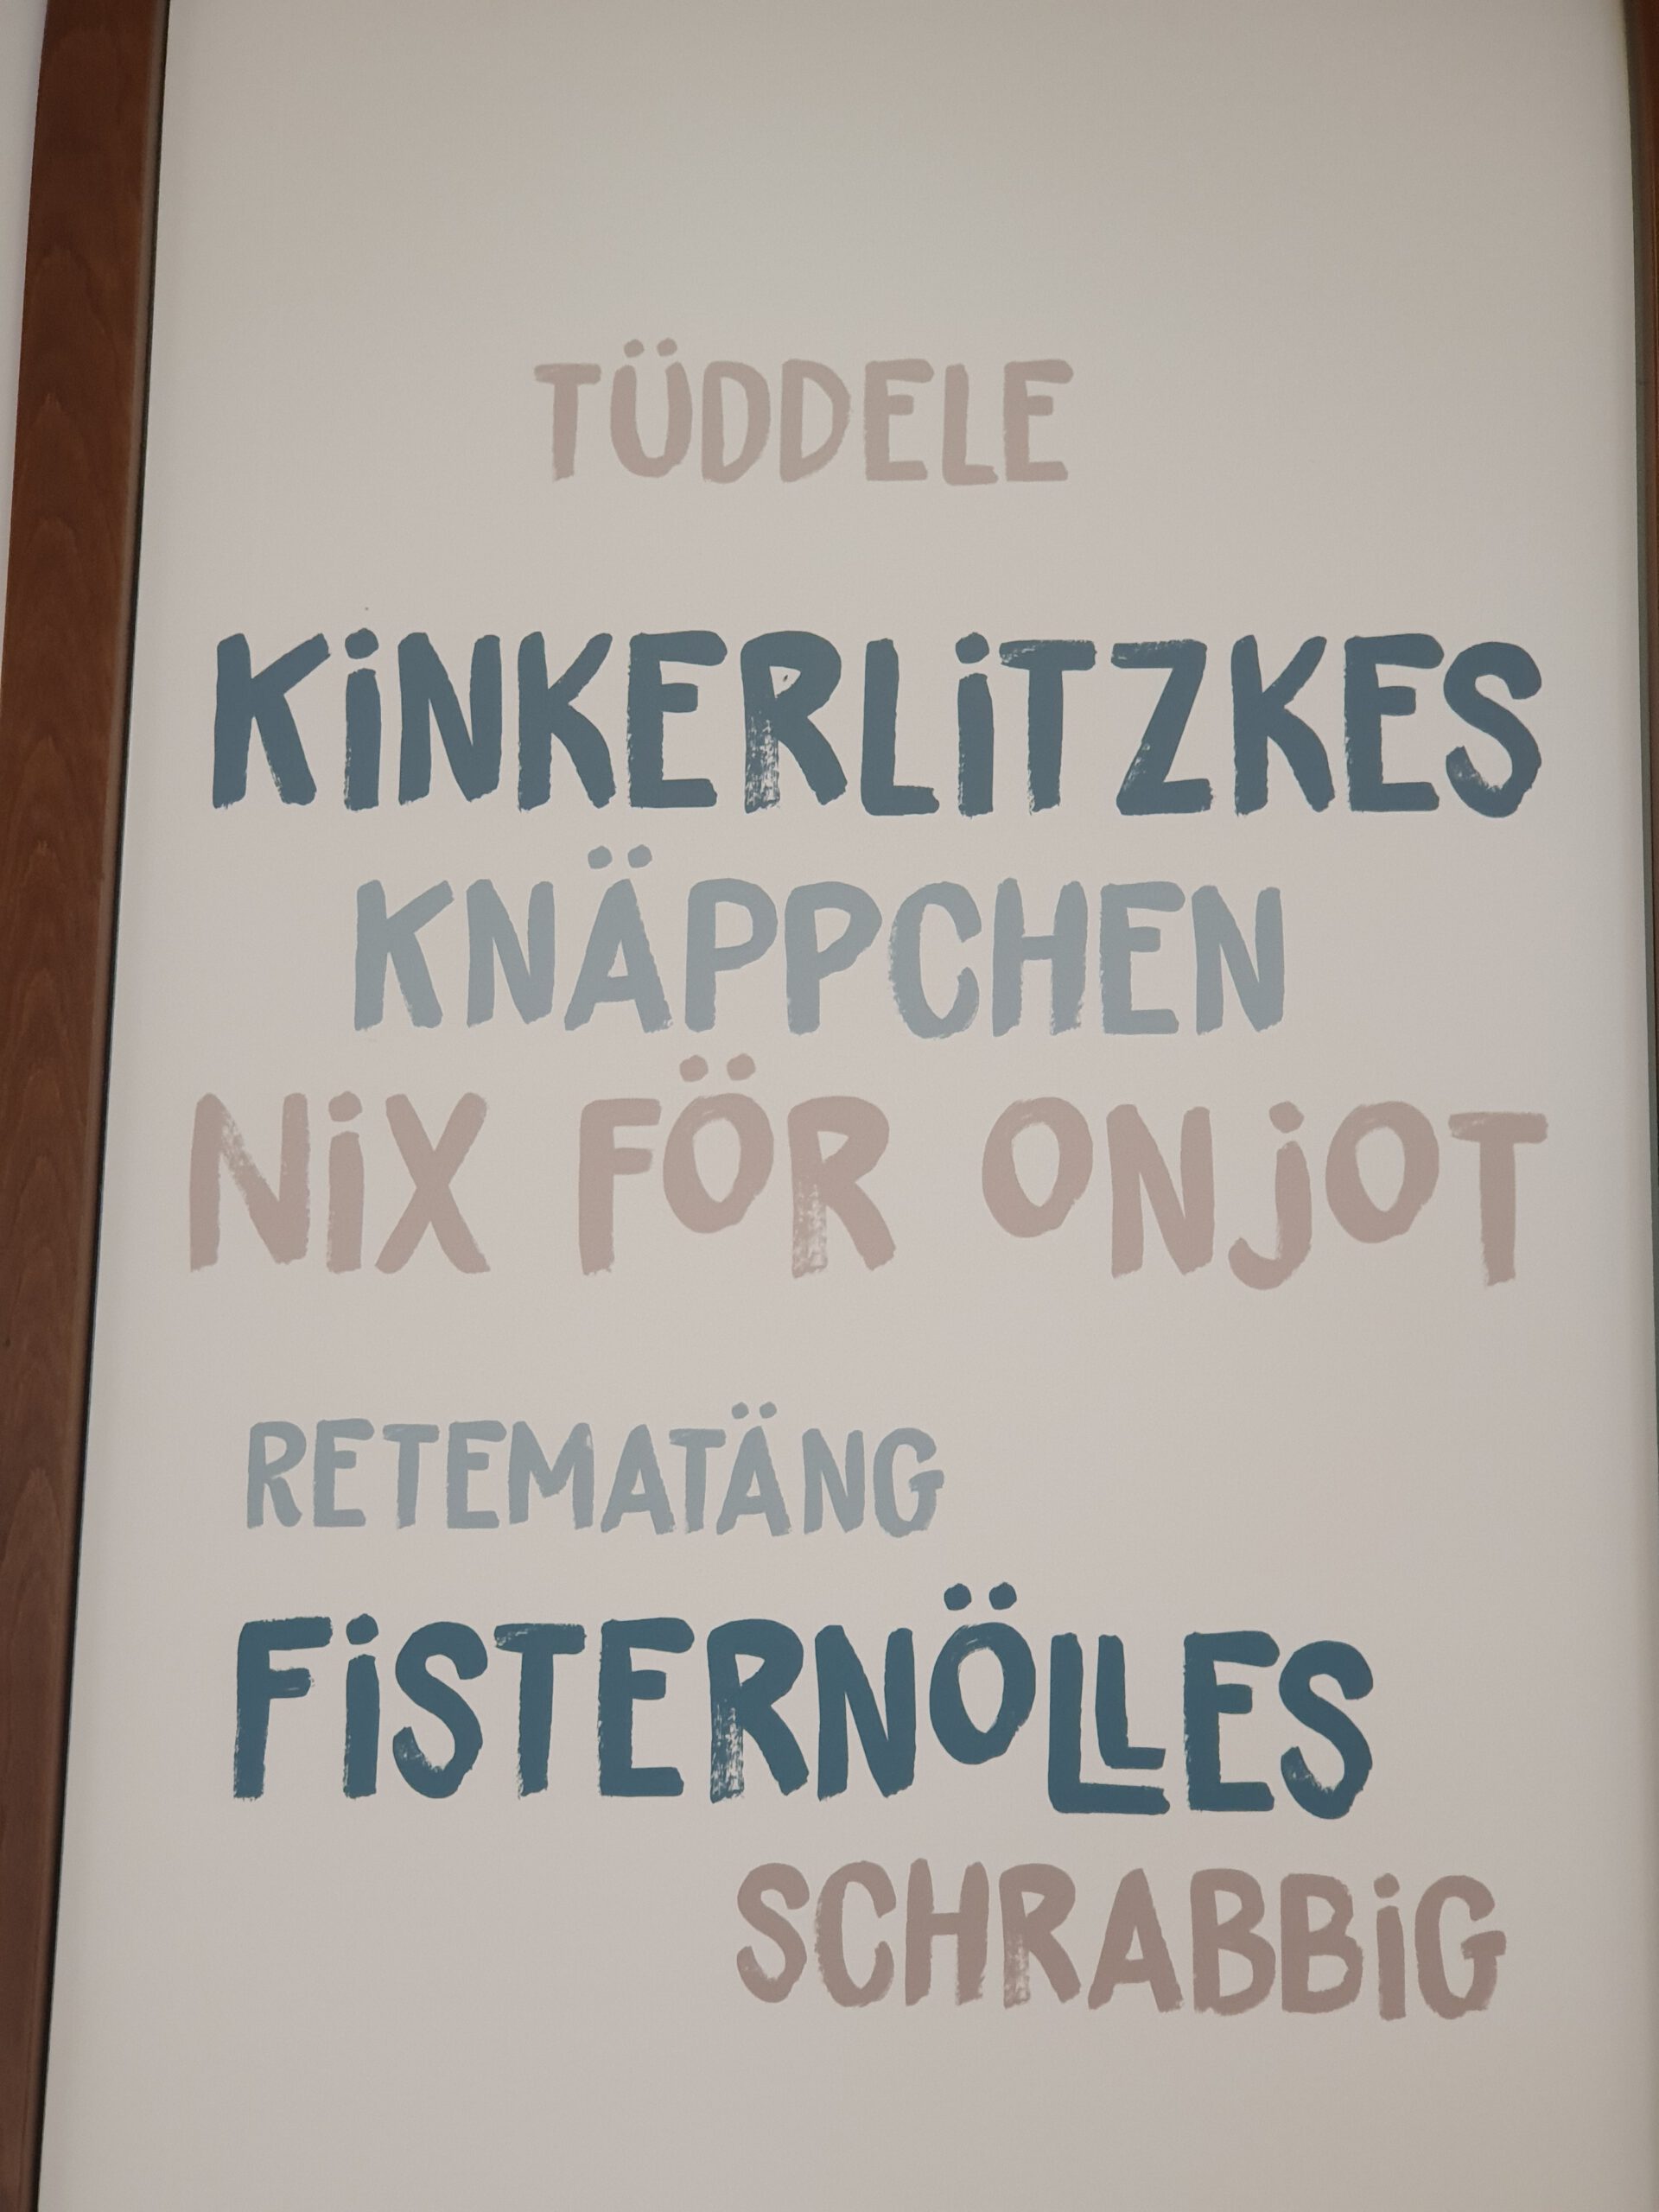 TÜDDELE
KiNKERLiTZKES
KNÄPPCHEN
NiX FÖR ONjOT
RETEMATÄNG
FiSTERNÖLLES
SCHRABBiG